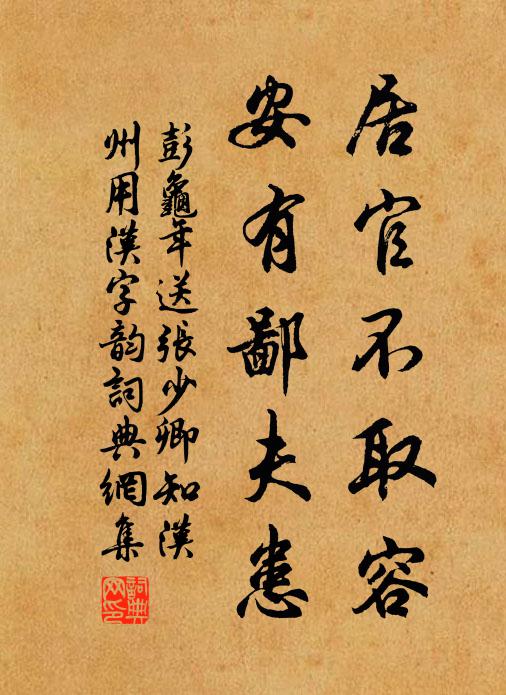 居官不取容
安有鄙夫患
彭龜年送張少卿知漢
州用漢字韵詞典網集
詞典
网印